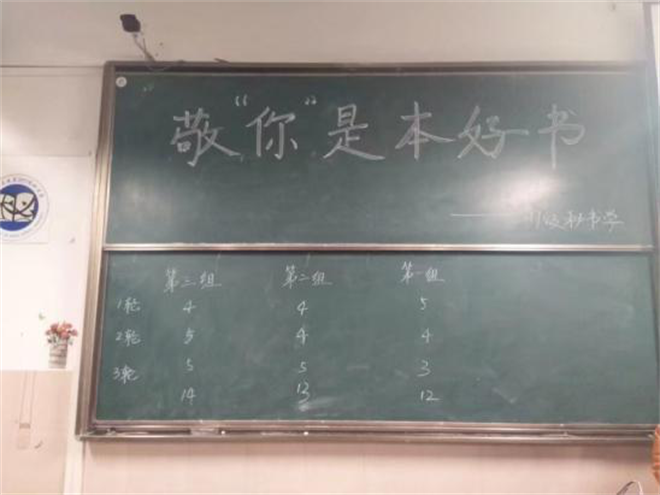 敬“你”是本好书
秘书学
第三组 第二组 第一组
1轮 4 4 5
2轮 5 4 4
3轮 5 5 3
14 13 12